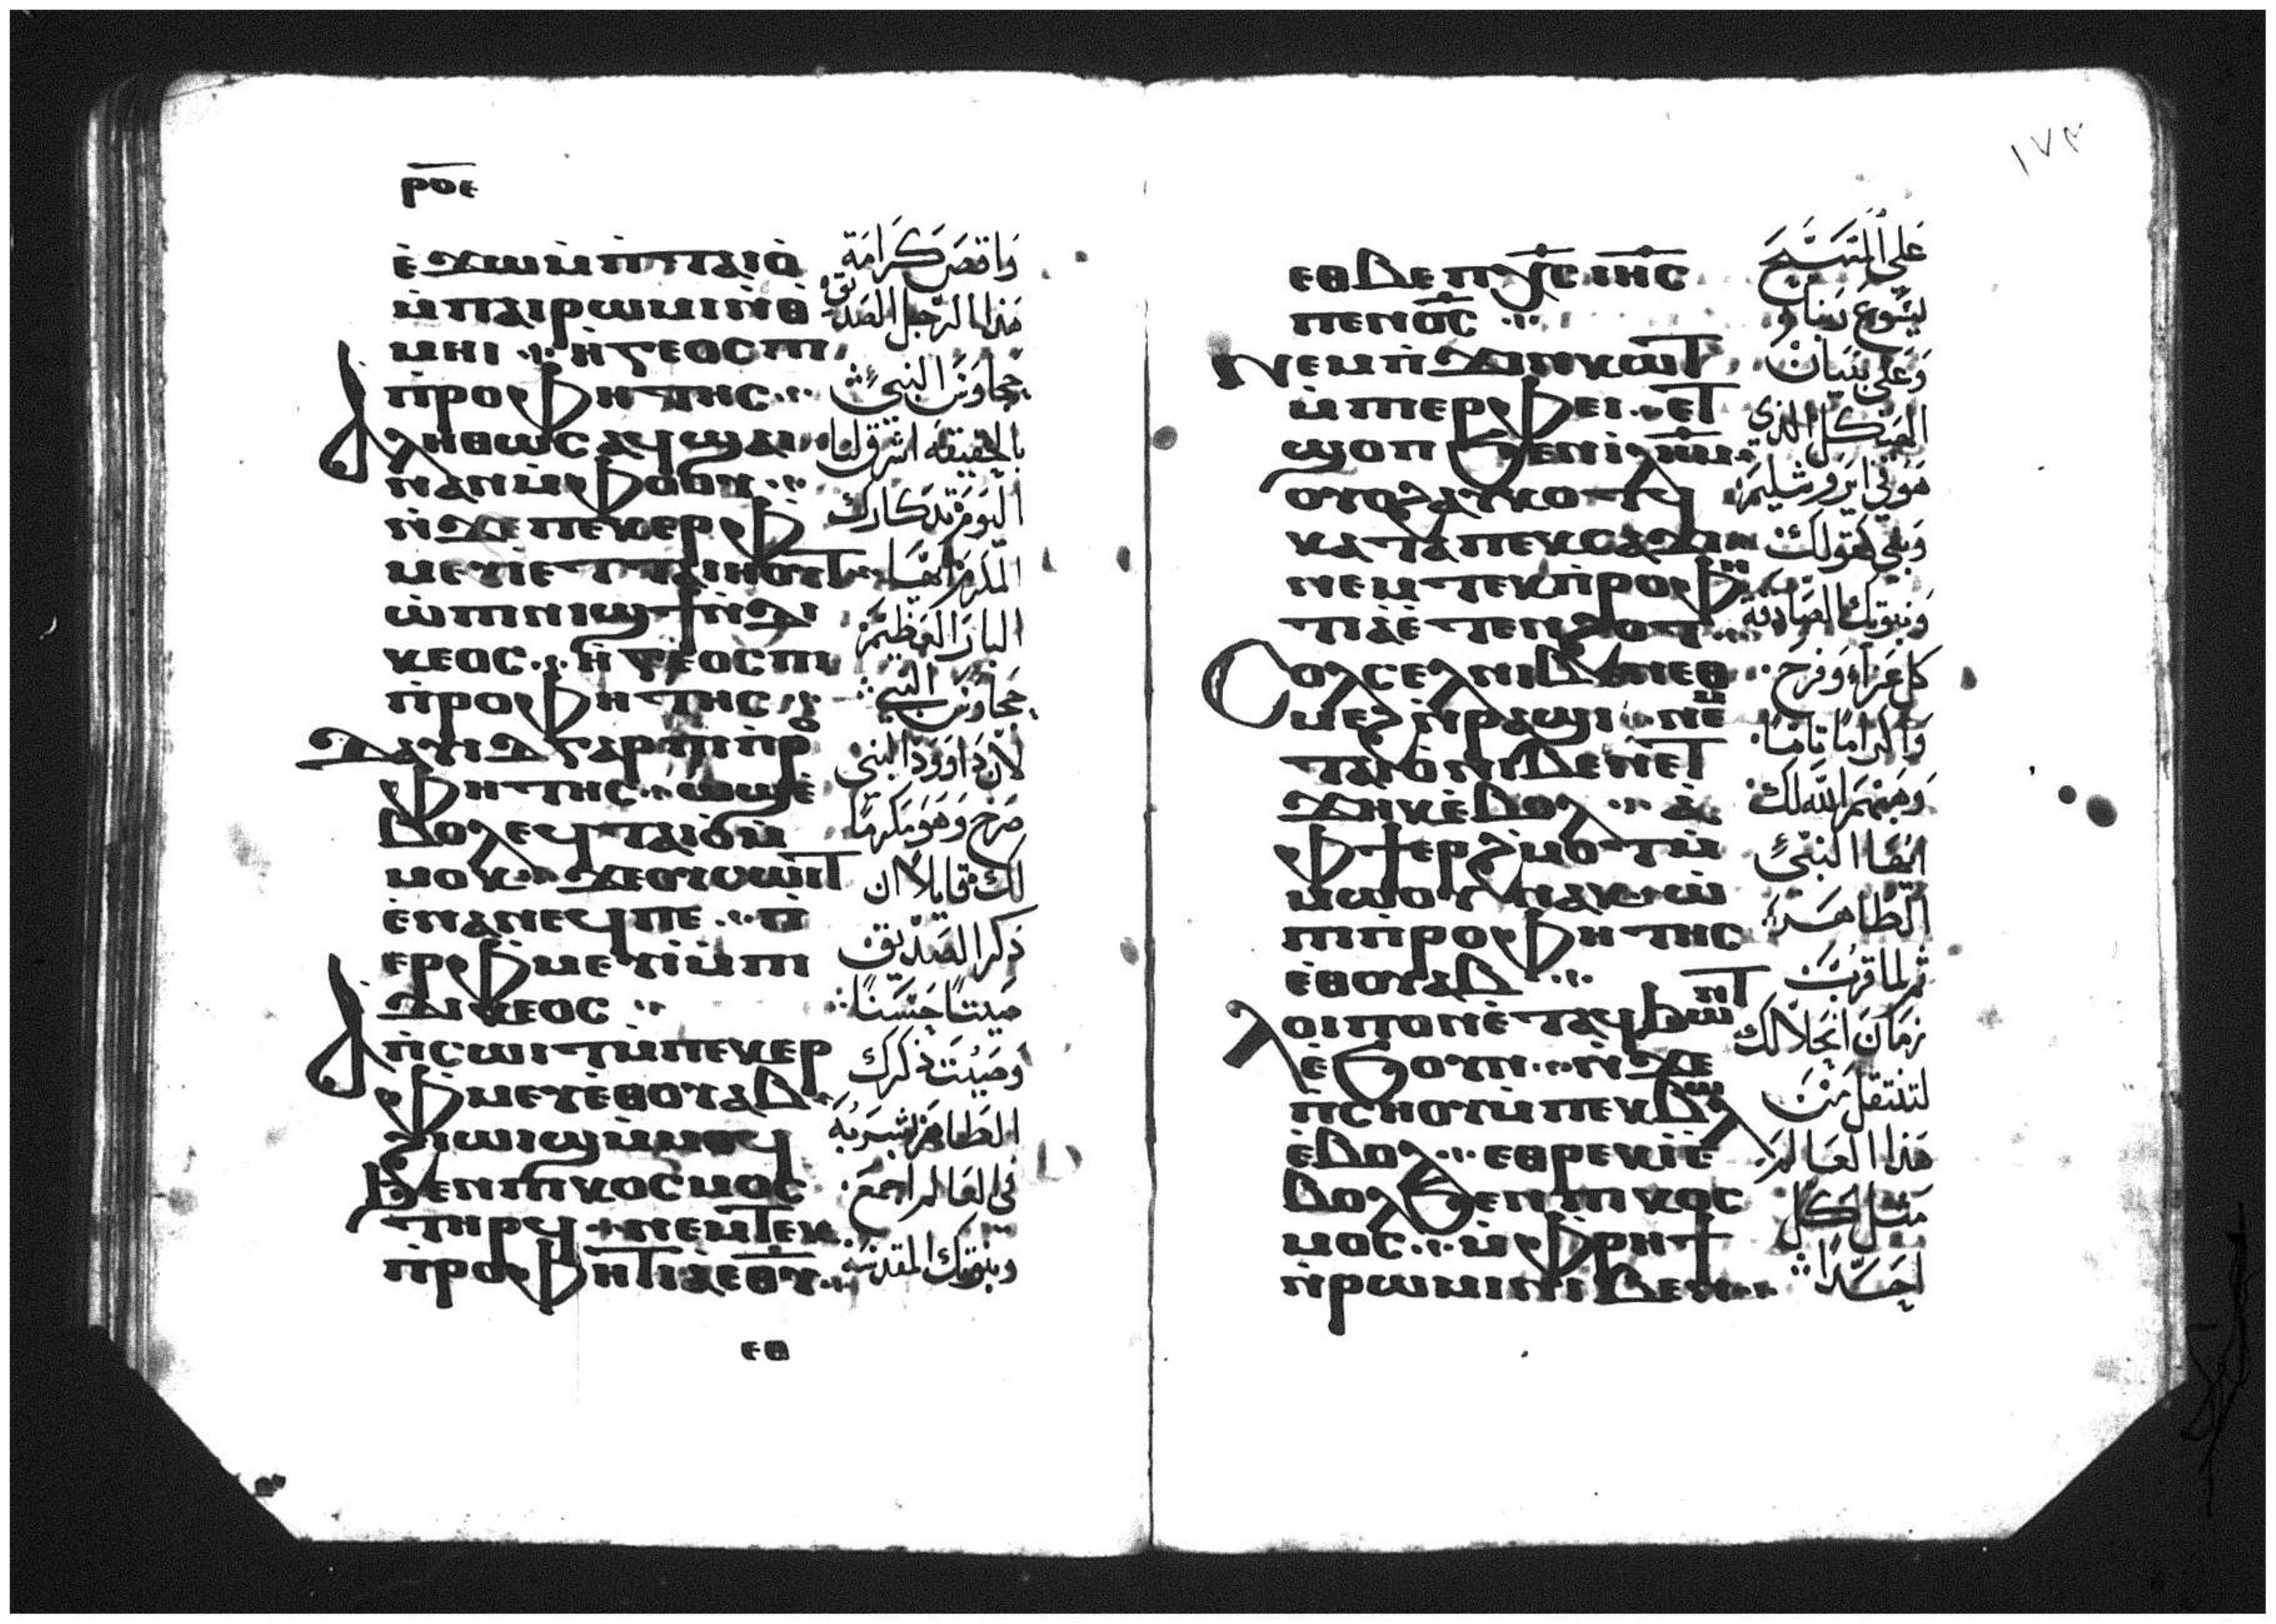 ⲣⲟⲉ
ⲉ̀ϫⲱⲙ̀ⲡ̀ⲧⲁⲓⲟ̀
ⲙ̀ⲡⲁⲓⲣⲱⲙⲓⲛ̀ⲑ
ⲙⲏⲓ ⲏ̀ⲅⲅⲉⲟⲥⲡⲓ
ⲡ̀ⲣⲟⲫⲏⲧⲏⲥ
ⲁⲗⲏⲑⲱⲥ ⲁϥϣⲁⲓ
ⲛⲁⲛⲙ̀ⲫⲟⲟⲩ
ⲛ̀ϫⲉⲡⲉⲕⲉⲣⲫ
ⲙⲉⲩⲓⲉⲧⲧⲁⲓⲏⲟⲩⲧ
ⲱ̀ⲡⲓⲛⲓϣϯⲛ̀ⲇⲓ
ⲕⲉⲟⲥ ⲏ̀ⲅⲅⲉⲟⲥⲡⲓ
ⲡ̀ⲣⲟⲫⲏⲧⲏⲥ
ⲇⲁⲩⲓⲇ ⲅⲁⲣ ⲡⲓⲡ̀ⲣ
ⲫⲏⲧⲏⲥ ⲱϣⲉ̀
ⲃⲟⲗⲉϥⲧⲁⲓⲟⲙ̀
ⲙⲟⲕ ϫⲉⲟⲩⲥⲱⲓⲧ
ⲉ̀ⲛⲁⲛⲉϥⲡⲉ ⲡ̀
ⲉⲣⲫⲙⲉⲩⲓⲙ̀ⲡⲓ
ⲇⲓⲕⲉⲟⲥ
ⲁⲡ̀ⲥⲱⲓⲧⲙ̀ⲡⲉⲕⲉⲣ
ⲫⲙⲉⲩⲉ̀ⲑⲟⲩⲁⲃ
ϩⲓⲱⲓϣⲙ̀ⲙⲟϥ
ϧⲉⲛⲡⲓⲕⲟⲥⲙⲟⲥ
ⲧⲏⲣϥ ⲛⲉⲙⲧⲉⲕ
ⲡ̀ⲣⲟⲫⲏⲧⲓⲁⲉⲑⲩ
ⲉⲑ
واقص كرامة
هذا الرجل الصديق
حجاوس النبي
بالحقيقه اشرق لنا
اليوم تدكارك
المكرم ايها
البار العظيم
حجاوس النبي
لان داوود النبي
صرخ وهو مكرما
لك قايلا ان
ذكر الصديق
صيتا حسنا
وصيت ذكرك
الطاهر اشهر به
في العالم اجمع
ونبوتك المقدسه
١٧٣
ⲉⲑⲃⲉⲡⲭ̅ⲥ̅ ⲓⲏ̅ⲥ̅
ⲡⲉⲛⲟ̅ⲥ̅
ⲛⲉⲙⲡ̀ϫⲓⲛⲕⲱⲧ
ⲙ̀ⲡⲓⲉⲣⲫⲉⲓ ⲉⲧ
ϣⲟⲡ ϧⲉⲛⲓⲗ̅ⲏ̅ⲙ̅
ⲟⲩⲟϩⲁⲩⲕⲟⲧϥ
ⲕⲁⲧⲁⲡⲉⲕⲥⲁϫⲓ
ⲛⲉⲙⲧⲉⲕⲡ̀ⲣⲟⲫⲏ
ⲧⲓⲁⲉ̀ⲧⲉⲛϩⲟⲧ
ⲥⲟⲗⲥⲉⲗⲛⲓⲃⲉⲛⲉⲑ
ⲙⲉϩⲛ̀ⲣⲁϣⲓ ⲛⲉⲙ
ⲧⲁⲓⲟⲛⲓⲃⲉⲛⲉⲧ
ϫⲏⲕⲉ̀ⲃⲟⲗ ⲁ̀
ⲫϯⲉⲣϩ̀ⲙⲟⲧⲙ̀
ⲙⲱⲟⲩ ⲛⲁⲕ ⲱ̀
ⲡⲓⲡ̀ⲣⲟⲫⲏⲧⲏⲥ
ⲉ̀ⲑⲟⲩⲁⲃ
ⲗⲟⲓⲡⲟⲛⲉ̀ⲧⲁϥϧⲱⲛⲧ
ⲉ̀ϧⲟⲩⲛ ⲛ̀ϫⲉ
ⲡ̀ⲥⲏⲟⲩⲙ̀ⲡⲉⲕⲃⲱⲗ
ⲉ̀ⲃⲟⲗ ⲉⲑⲣⲉⲕⲓ̀ⲉ̀
ⲃⲟⲗϧⲉⲛⲡⲓⲕⲟⲥ
ⲙⲟⲥ ⲙ̀ⲫⲣⲏϯ
ⲛ̀ⲣⲱⲙⲓⲛⲓⲃⲉⲛ
على المسيح
يسوع ربنا
وعلى بنيان
الهيكل الذي
هو في ايروشليم
وبني كقولك
ونبوتك الصادقة
كل عزاء وفرح
واكراما تاما
وهبهم الله لك
ايها النبي
الطاهر
ثم لما قرب
زمان انحلالك
لتنتقل من
هذا العالم
مثل كل
احد